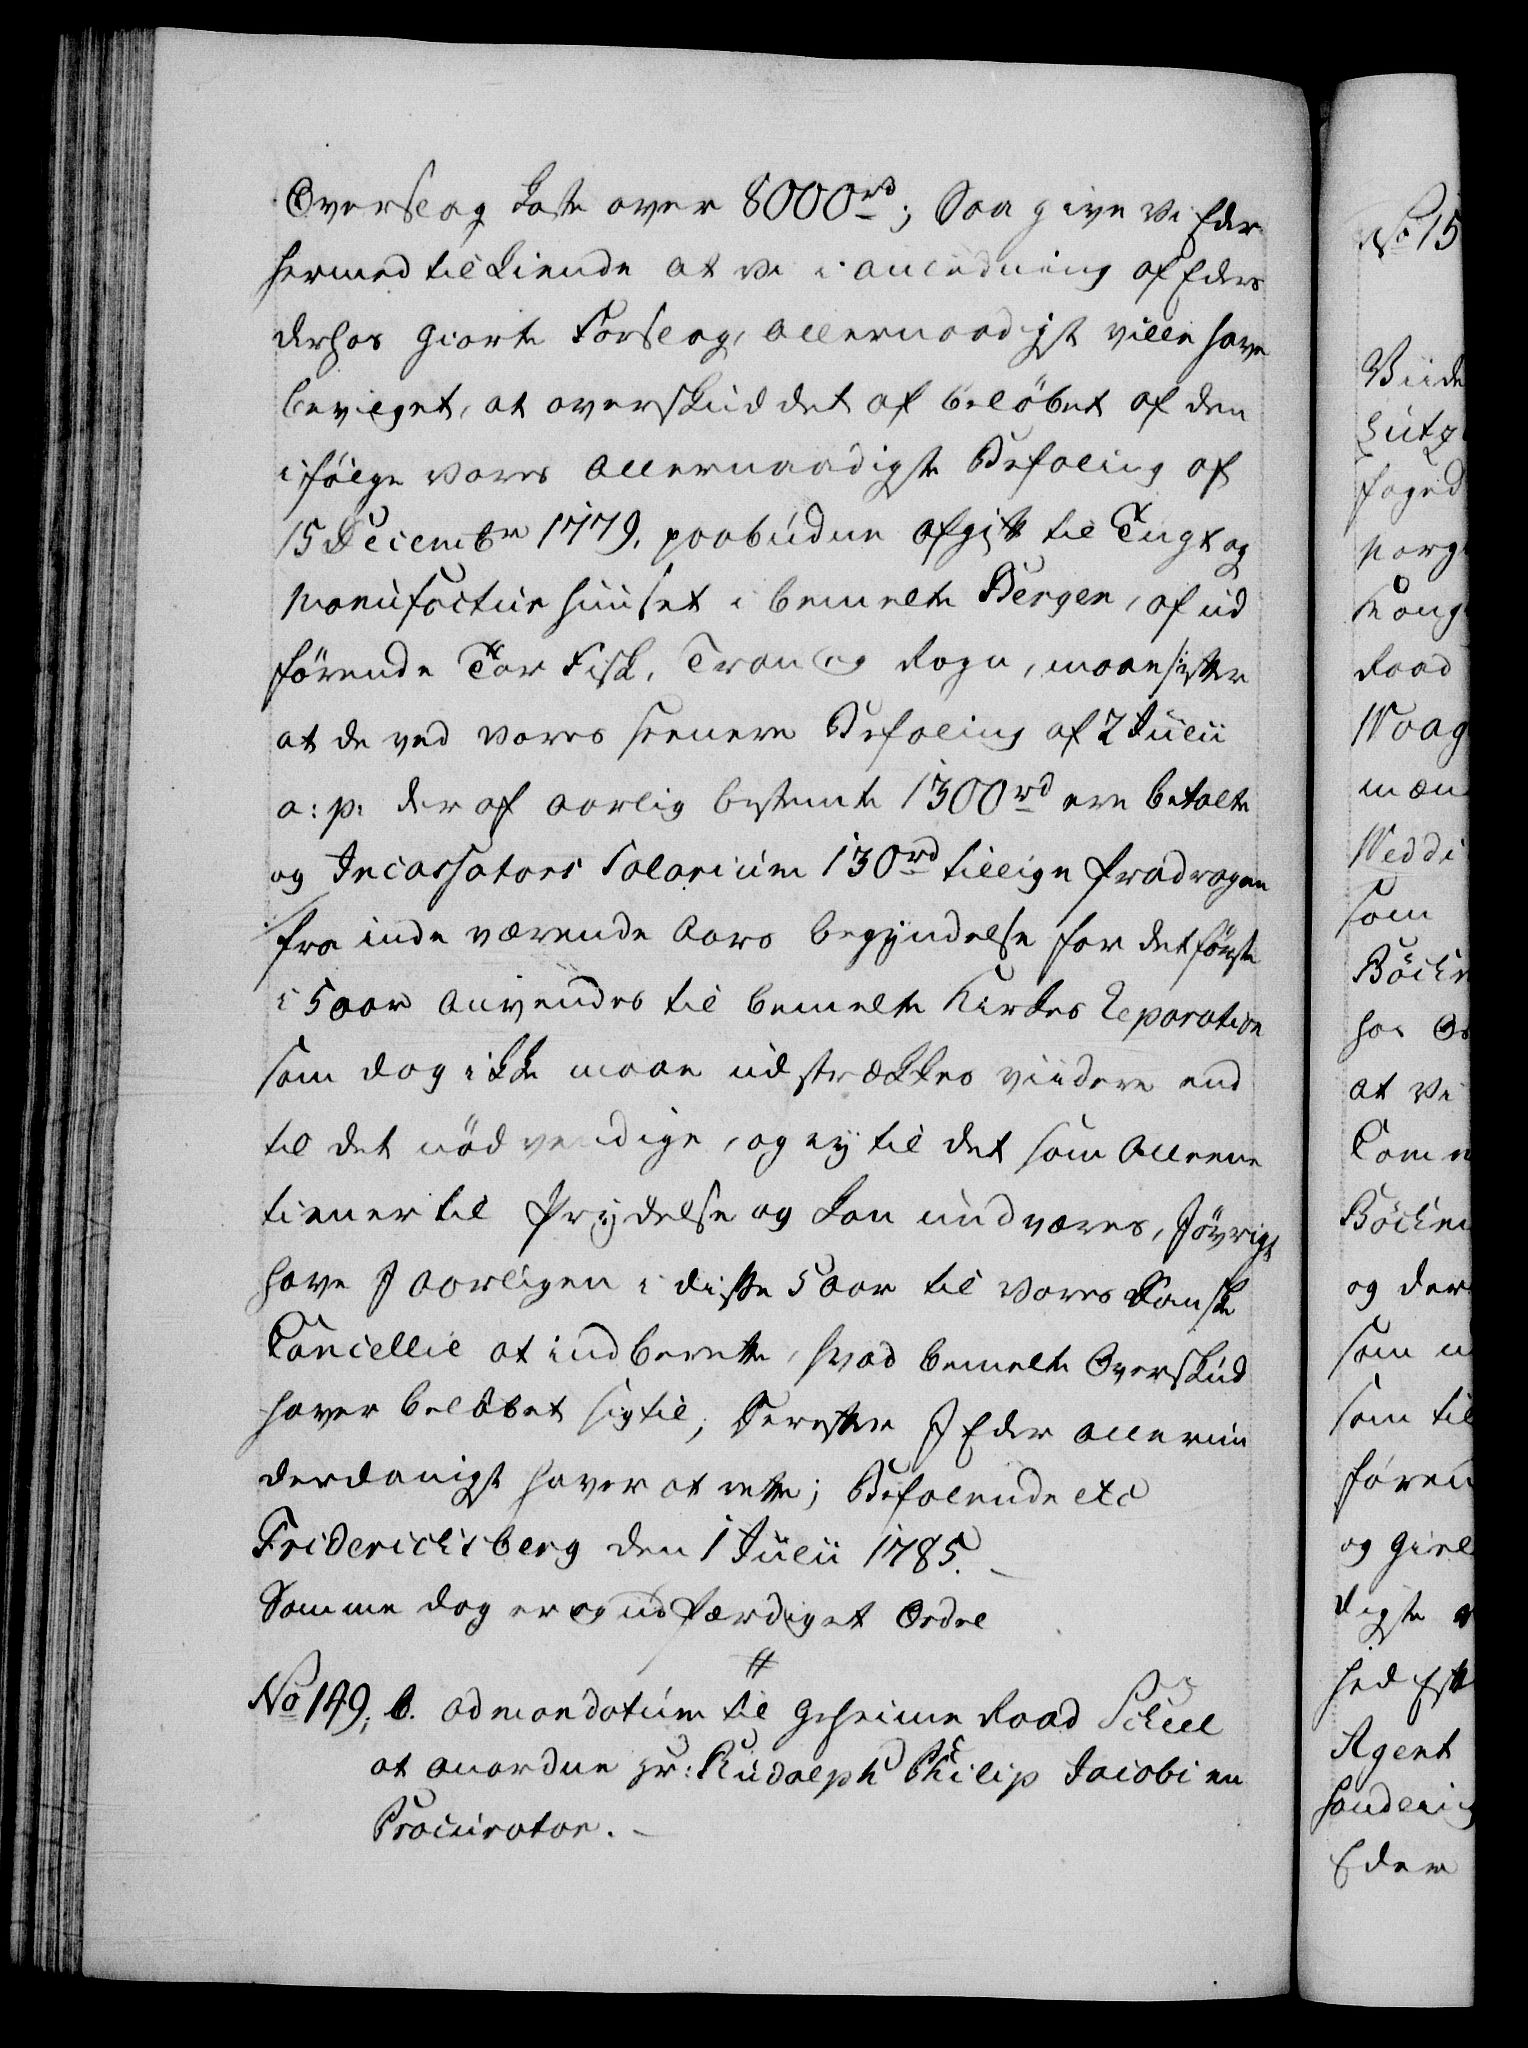 Overslag koste over 8000rd; Saa give Vi Eder
hermed tilkiende at vi i anledning af Eders
derhos giorte Forslag, allernaadigst ville have
bevilget, at overskuddet af Beløbet af den
ifølge vores allernaadigste Befaling af
15 Decembr 1779. paabudne afgift til Tugt og
Manufactur huuset i bemelte Bergen, af ud
førende Tør Fisk, Tran og Rogn, maae, efter
at de ved vores seenere Befaling af 2 Julii
a: p: der af aarlig bestemte 1300rd ere betalte
og Incassators Salarium 130rd tillige fradragen
fra inde værende Aars begyndelse for det første
i 5 aar anvendes til bemelte Kirkes Reparation
som dog ikke maae udstrækkes viidere end
til det nødvendige, og ey til det som alleene
tiener til Prydelse og kan undværes, Iøvrigt
have I aarligen i disse 5 aar til vores Danske
Cancellie at indberette, hvad bemelte Overskud
haver beløbet sig til; Derefter I Eder allerun
derdanigst haver at rette; Befalende etc
Friderichsberg den 1 Julii 1785.
Samme dag er og udfærdiget Ordre
No 149, b. ad mandatum til Geheime Raad Scheel
at anordne Hr: Rudolph Philip Jacobi en
Procurator.
No 15
Viide
Lütz
foged
Norge
Kong
Raad
Waag
mæn
Weddi
som
Böcke
hos Os
at Vi
Com
Böckm
og der
som
som til
føren
og
digste
hed Eft
Agent
handling
Eder